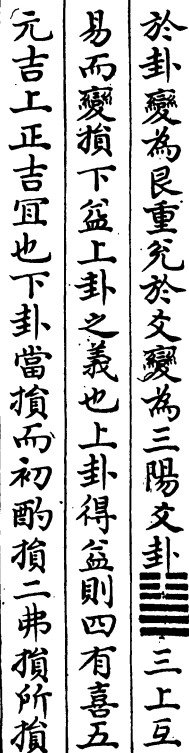 於卦變為艮重兊於爻變為三陽爻卦䷨三上互
易而變損下益上卦之義也上卦得益則四有喜五
元吉上正吉冝也下卦當損而初酌損二弗損所損